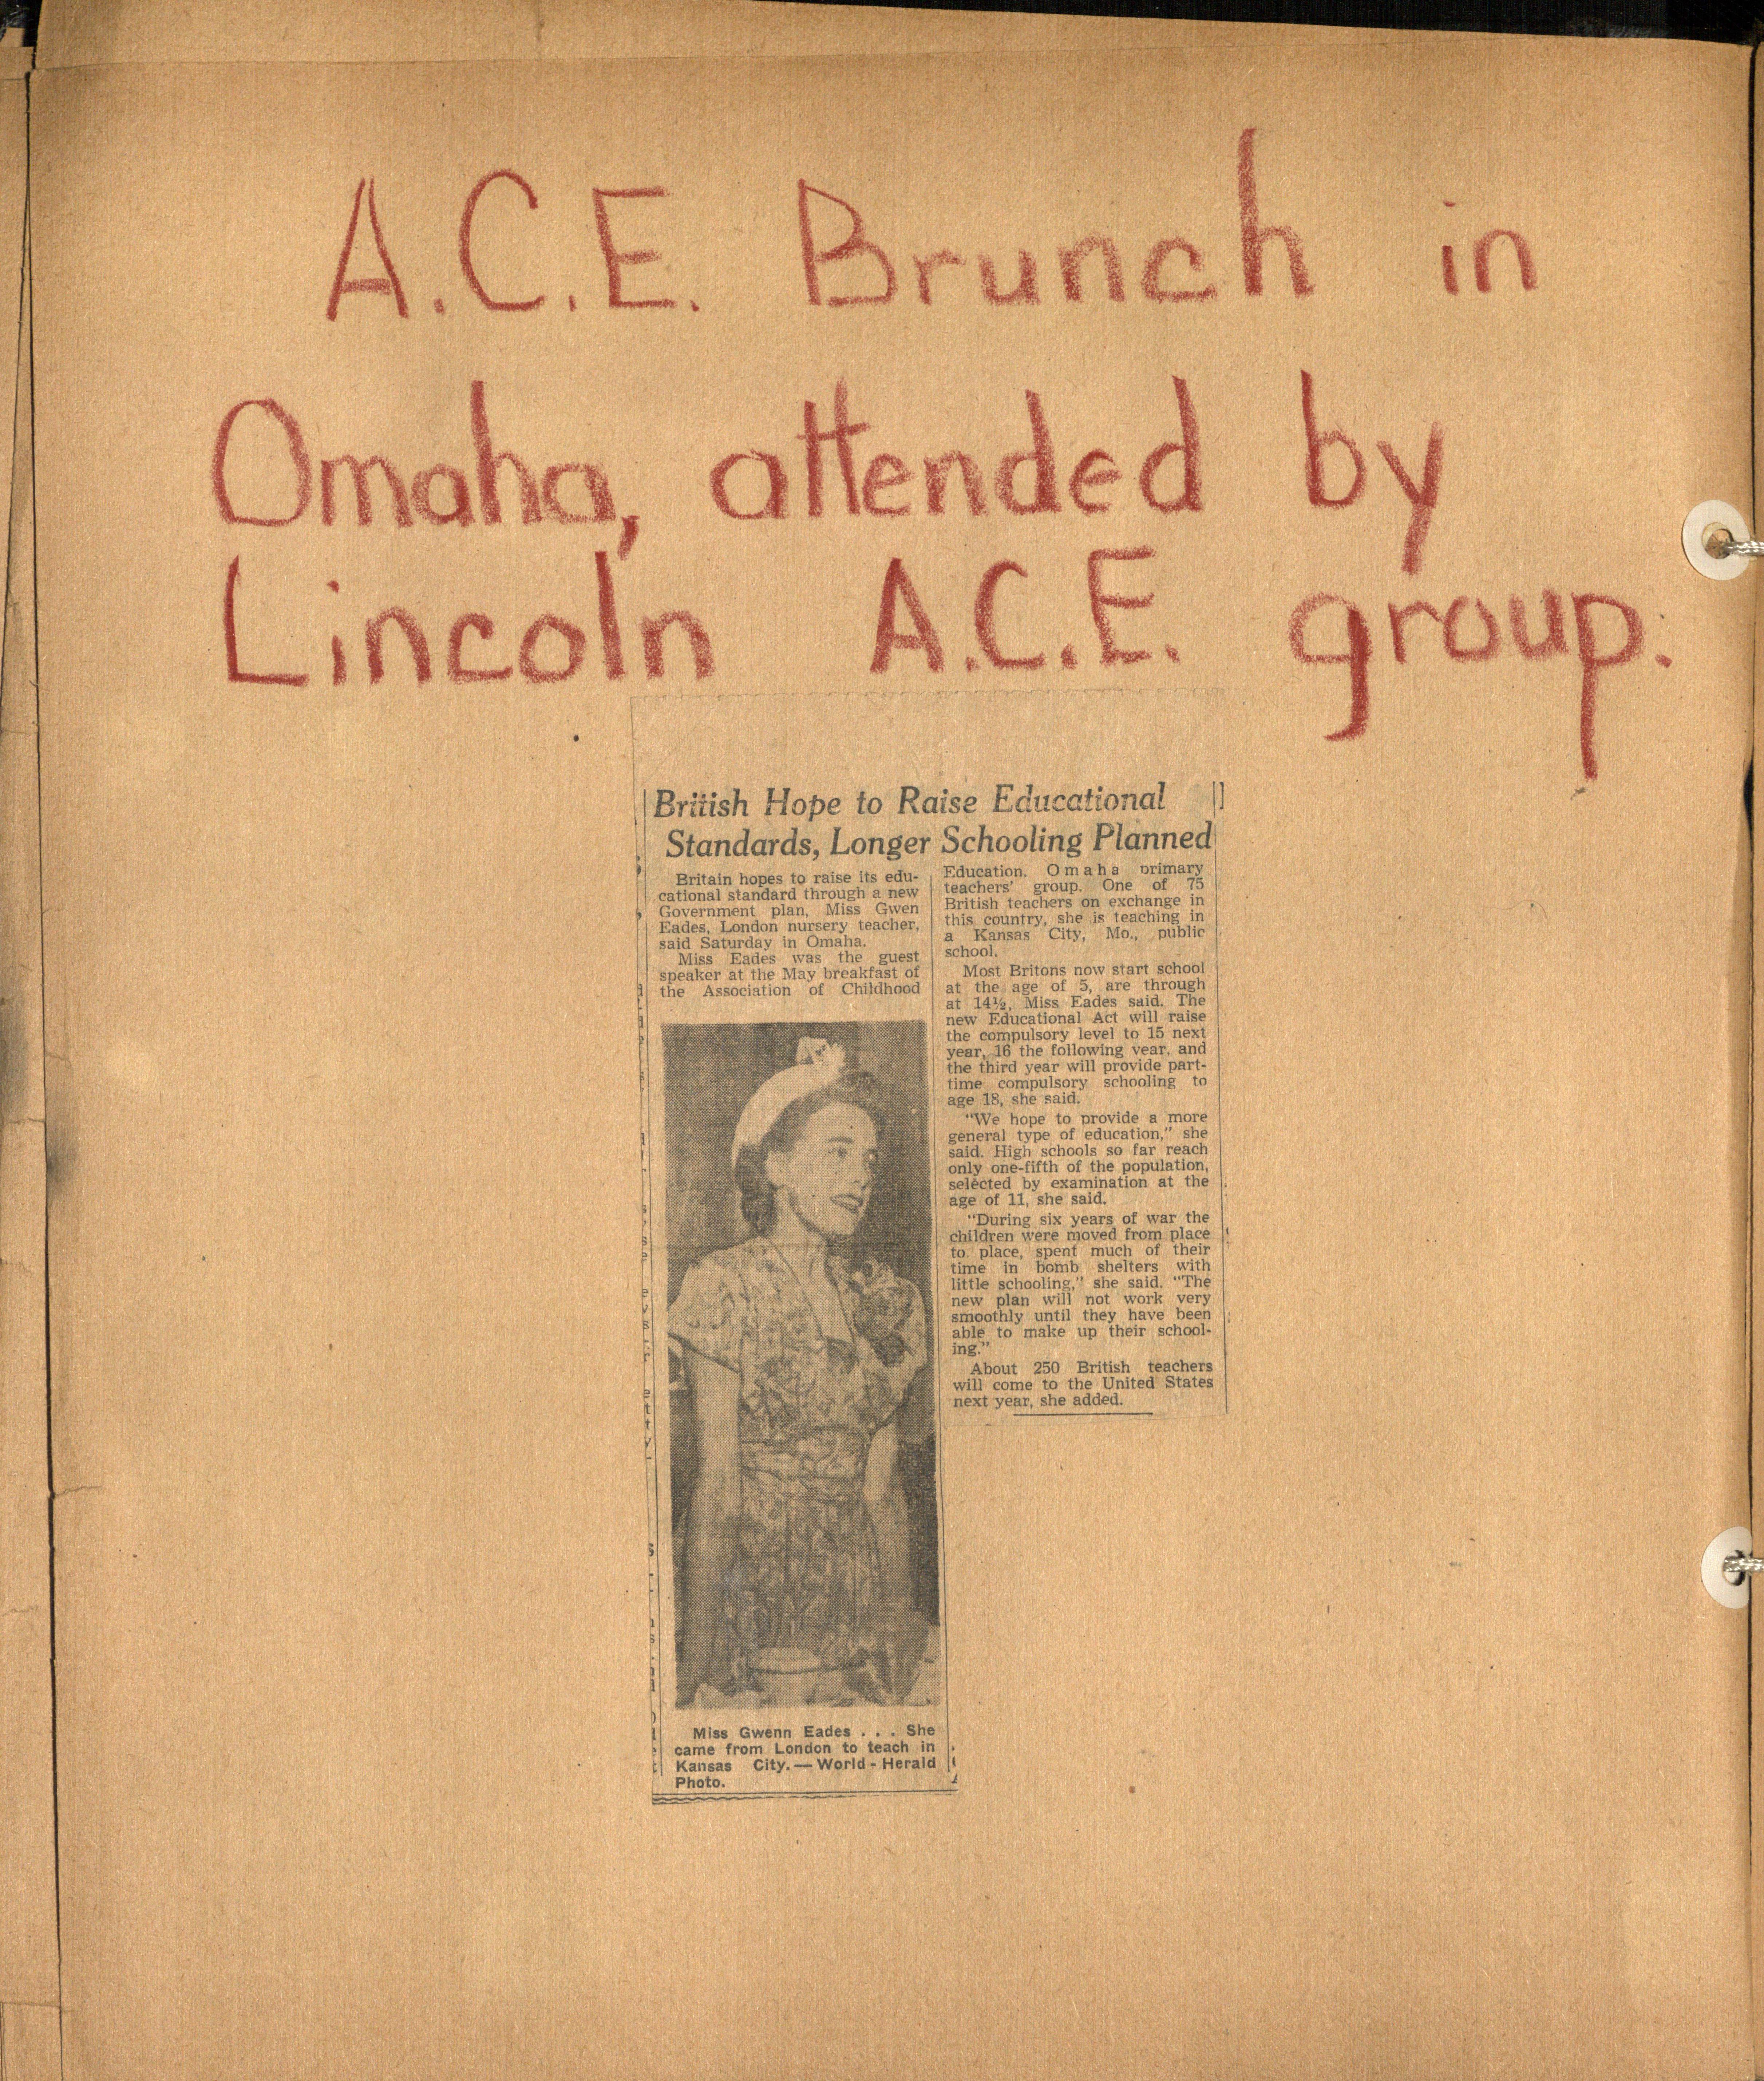 A.C.E. Brunch in
Omaha, attended by
Lincoln A.C.E. group.
British Hope to Raise Educational
Standards, Longer Schooling Planned
Britain hopes to raise its edu-
cational standard through a new
Government plan, Miss Gwen
Eades, London nursery teacher,
said Saturday in Omaha.
Miss Eades was the guest
speaker at the May breakfast of
the Association of Childhood
Education, Omaha primary
teachers' group. One of 75
British teachers on exchange in
this country, she is teaching in
a Kansas City, Mo., public
school.
Most Britons now start school
at the age of 5, are through
at 14½, Miss Eades said. The
new Educational Act will raise
the compulsory level to 15 next
year, 16 the following year, and
the third year will provide part-
time compulsory schooling to
age 18, she said.
"We hope to provide a more
general type of education," she
said. High schools so far reach
only one-fifth of the population,
selected by examination at the
age of 11, she said.
"During six years of war the
children were moved from place
to place, spent much of their
time in bomb shelters with
little schooling," she said. "The
new plan will not work very
smoothly until they have been
able to make up their school-
ing."
About 250 British teachers
will come to the United States
next year, she added.
Miss Gwenn Eades . . . She
came from London to teach in
Kansas City.—World-Herald
Photo.